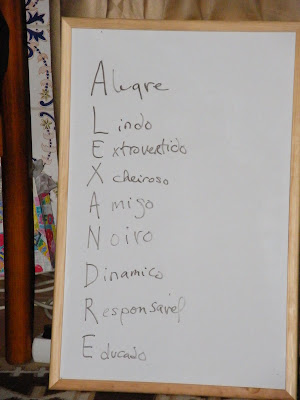 Alegre
Lindo
Extrovertido
X cheiroso
Amigo
Noivo
Dinamico
Responsável
Educado